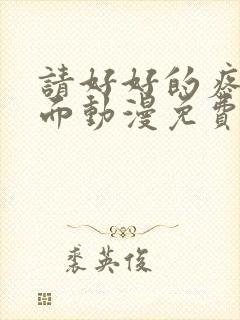 請好好的疼
而動漫免費
裘英俊